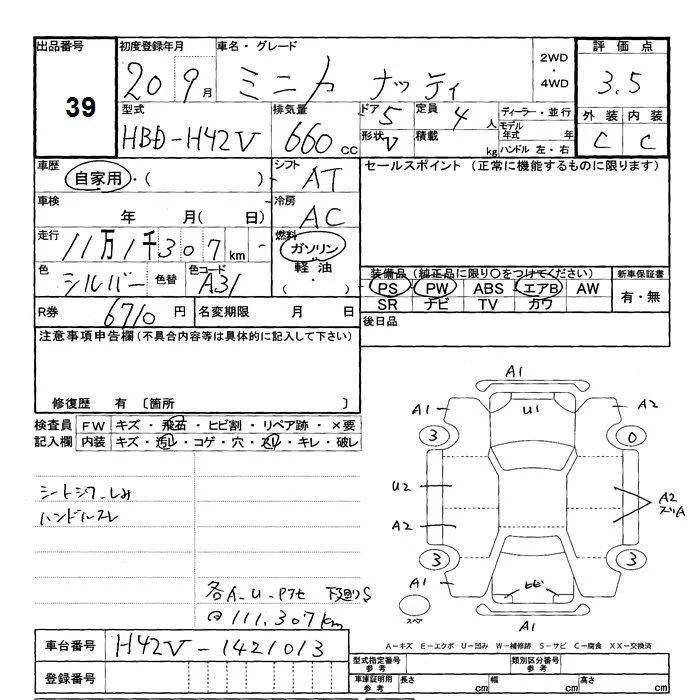 出品番号 39
初度登録年月 20 9月
車名・グレード ミニカ ナッティ
2WD・4WD
評価点 3.5
型式 HBD-H42V
排気量 660cc
ドア 5
形状 V
定員 4人
積載 kg
ディーラー・並行
モデル年式 年
ハンドル 左・右
外装 C
内装 C
車歴 自家用・( )
シフト AT
セールスポイント (正常に機能するものに限ります)
車検 年 月( 日)
冷房 AC
走行 11万1千307km
燃料 ガソリン・軽油・( )
色 シルバー 色替
色コード A31
装備品 (純正品に限り○をつけてください)
PS PW ABS エアB AW
SR ナビ TV カワ
新車保証書 有・無
R券 6710円
名変期限 月 日
後日品
注意事項申告欄 (不具合内容等は具体的に記入して下さい)
修復歴 有 〔箇所 〕
検査員記入欄
FW キズ・飛石・ヒビ割・リペア跡・×要
内装 キズ・汚レ・コゲ・穴・スレ・キレ・破レ
シートシワ_しみ
ハンドルスレ
各A_U_Pアセ 下廻りS
@111.307km
A1
A1 U1 A2
3 0
U2
A2
A2
スリA
3 3
A1 ヒビ
スペア
A1
A-キズ E-エクボ U-凹み W-補修跡 S-サビ C-腐食 XX-交換済
車台番号 H42V-1421013
登録番号
型式指定番号 参考
類別区分番号 参考
車庫証明用 参考 長さ cm 幅 cm 高さ cm